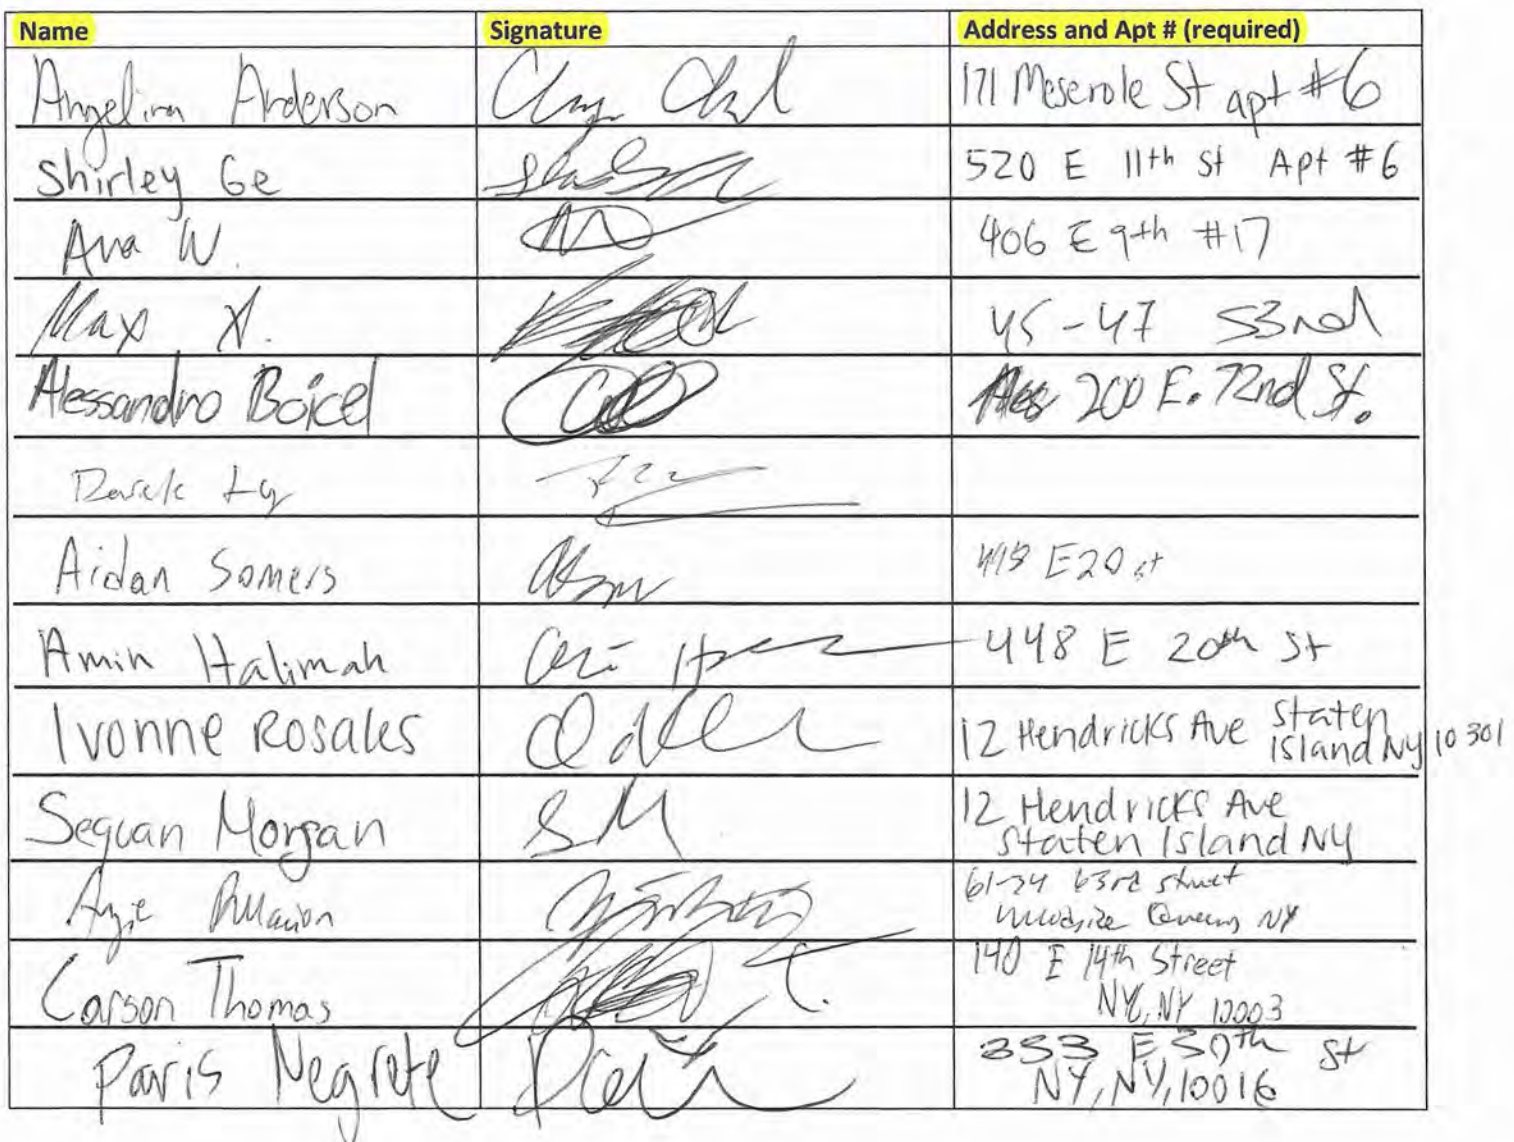 Name Signature Address and Apt # (required)
Angelina Anderson 171 Meserole St apt #6
Shirley Ge 520 E 11th St Apt #6
Ava W. 406 E 9th #17
Max X. 45-47 53rd
Alessandro Boicel 200 E. 72nd St.
Derick Ly
Aidan Somers E 20 st
Amin Halimah 448 E 20th St
Ivonne Rosales 12 Hendricks Ave Staten
Island NY 10301
Sequan Morgan SM 12 Hendricks Ave
Staten Island NY
Angie 63rd street
Queens NY
Carson Thomas T. 140 E 14th Street
NY, NY 10003
Paris Negrete 333 E 30th St
NY, NY, 10016